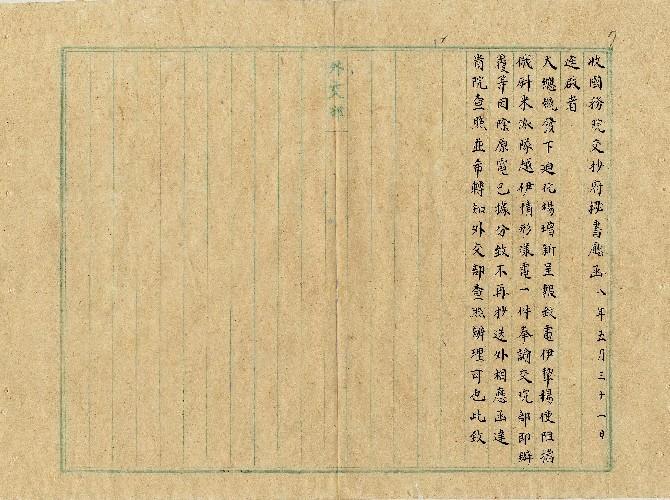 收國務院交抄府秘書廳函 八年五月三十一日
逕啟者
大總統發下迪化楊增新呈報敘電伊犂楊使阻滿
俄斜米派隊越伊情形漾電一件奉諭交院部即辦
覆等因除原電已據分致不再抄送外相應函達
貴院查照並希轉知外交部查照辦理可也此致
外交部